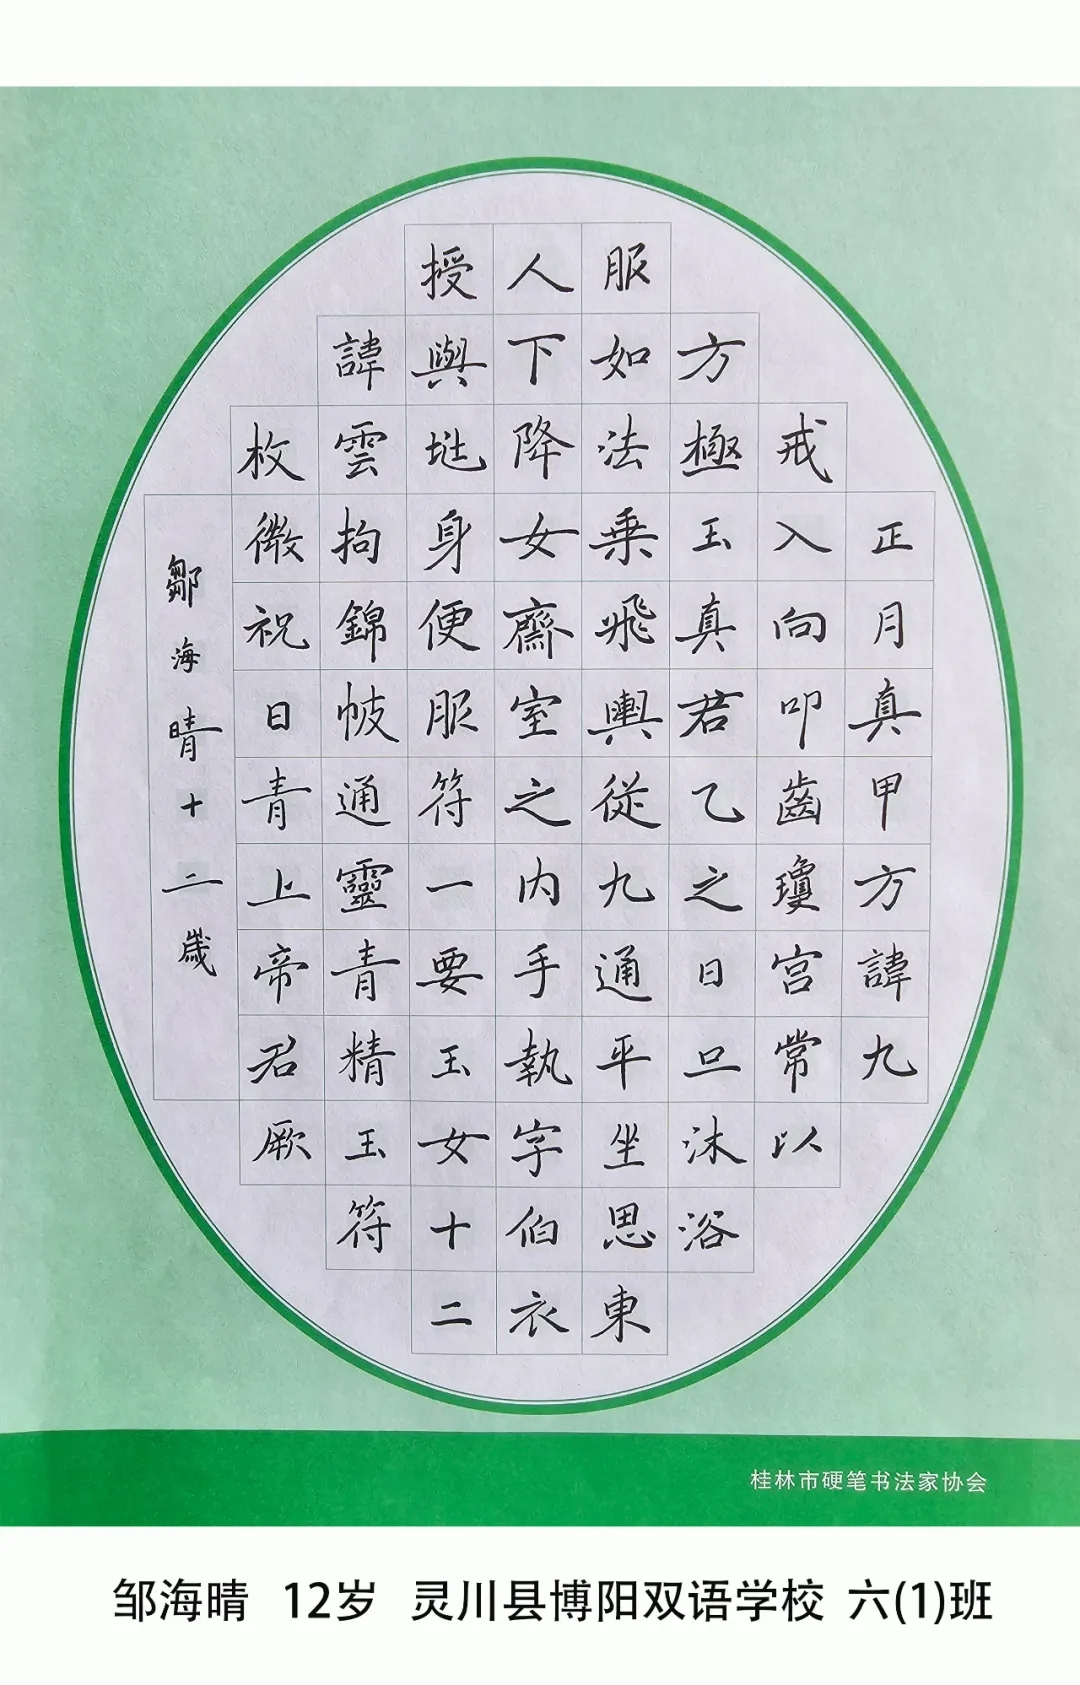 正月真甲方諱九
戒入向叩齒瓊宫常以
方極玉真君乙之日沐浴
服如法乗飛輿從九通平坐思東
人下降女齋室之内手執字伯衣
授與身便服符一要玉女十二
諱雲拘錦帔通靈青精玉符
枚微祝日青上帝君厥
鄒海晴十二歲
桂林市硬笔书法家协会
邹海晴 12岁 灵川县博阳双语学校 六(1)班